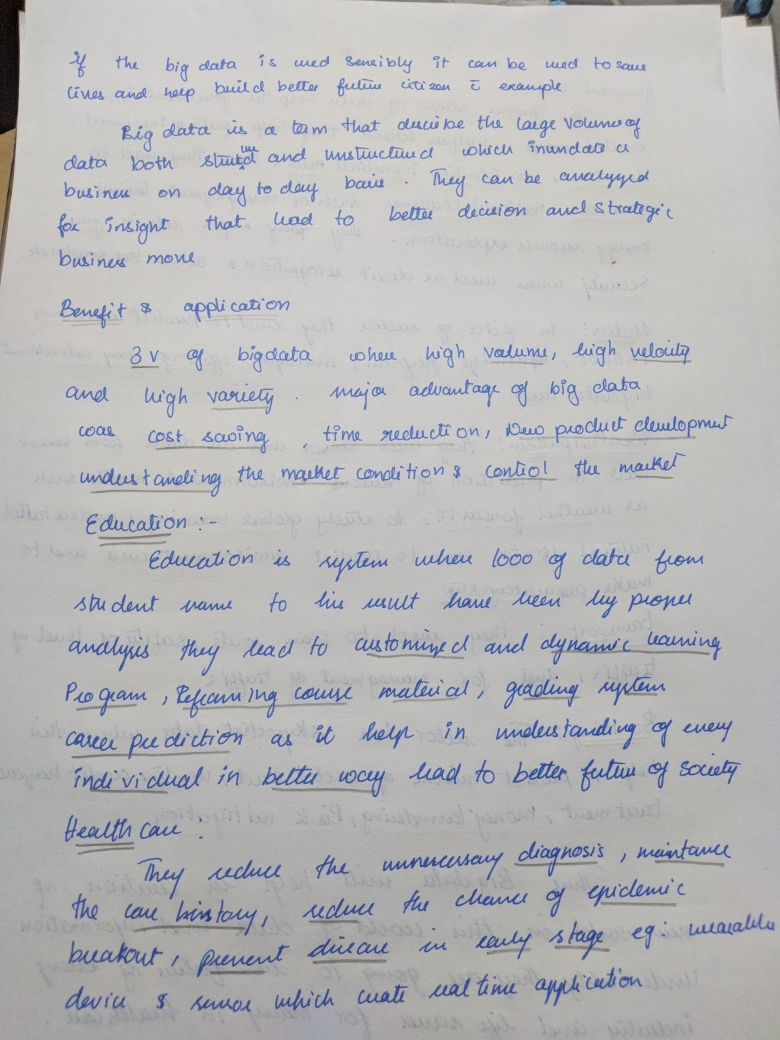 If the big data is used sensibly it can be used to save
lives and help build better future citizen c̄ example
Big data is a term that describe the large volume of
data both structured and unstructured which inundate a
business on day to day basis. They can be analyzed
for insight that lead to better decision and strategic
business move
Benefit & application
3 V of bigdata where high volume, high velocity
and high variety. major advantage of big data
was cost saving, time reduction, New product development
understanding the market condition & control the market
Education :-
Education is system where 1000 of data from
student name to his result have been by proper
analysis they lead to customized and dynamic learning
Program, Reframing course material, grading system
career prediction as it help in understanding of every
individual in better way lead to better future of society
Health care.
They reduce the unnecessary diagnosis, maintance
the care history, reduce the chance of epidemic
breakout, prevent disease in early stage eg: wearable
device & sensor which create real time application